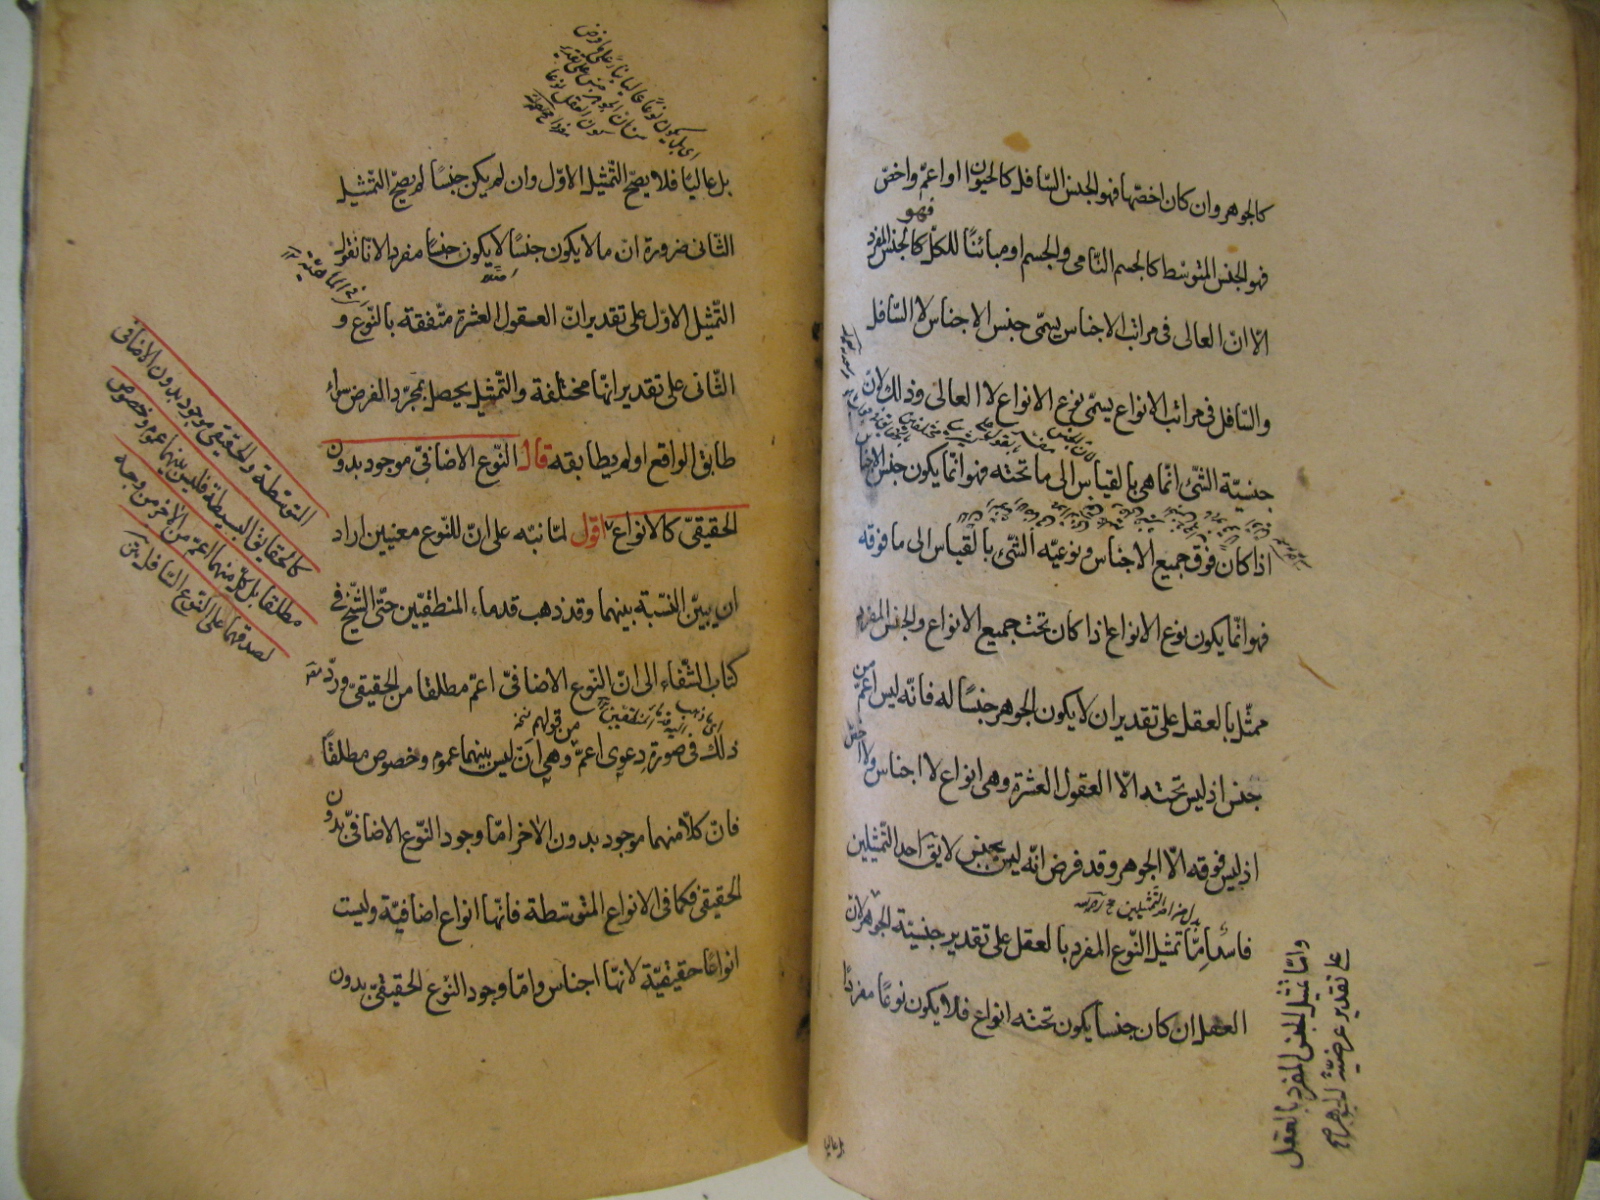 كالجوهر وان كان اخصّها فهو الجنس السّافل كالحيوان او اعمّ واخصّ
فهو
فهو الجنس المتوسّط كالجسم النّامى والجسم او مبائنًا للكلّ كالجنس المفرد
الّا انّ العالى فى مراتب الاجناس يسمّى جنس الاجناس لا السّافل
والسّافل فى مراتب الانواع يسمّى نوع الانواع لا العالى وذلك لانّ
جنسيّة الشّئ انّما هى بالقياس الى ما تحته فهو انّما يكون جنس الاجناس
اذا كان فوق جميع الاجناس ونوعيّة الشّئ بالقياس الى ما فوقه
فهو انّما يكون نوع الانواع اذا كان تحت جميع الانواع والجنس المفرد
ممثّل بالعقل على تقدير ان لا يكون الجوهر جنسًا له فانّه ليس اعمّ من
جنس اذ ليس تحته الّا العقول العشرة وهى انواع لا اجناس ولا اخصّ
اذ ليس فوقه الّا الجوهر وقد فرض انّه ليس بجنس لا يق احد التّمثيلين
فاسد امّا تمثيل النّوع المفرد بالعقل على تقدير جنسيّة الجوهر لانّ
العقل ان كان جنسا يكون تحته انواع فلا يكون نوعًا مفردًا
وامّا تمثيل الجنس المفرد بالعقل
على تقدير عرضيّة الجوهر صح
بل عاليا
اى بل يكون نوعًا عاليا بناءً على ما فرض
من ان الجوهر جنس على تقدير
كون العقل نوعا
بل عاليًا فلا يصحّ التّمثيل الاوّل وان لم يكن جنسًا لم يصحّ التّمثيل
الثّانى ضرورة انّ ما لا يكون جنسًا لا يكون جنسًا مفردا لانّا نقول
التّمثيل الاوّل على تقدير انّ العقول العشرة متّفقة بالنّوع و
الثّانى على تقدير انّها مختلفة والتّمثيل يحصل بمجرّد الفرض سواء
طابق الواقع او لم يطابقه قال النّوع الاضافىّ موجود بدون
الحقيقىّ كالانواع اقول لمّا نبّه على انّ للنّوع معنيين اراد
ان يبيّن النّسبة بينهما وقد ذهب قدماء المنطقيّين حتّى الشّيخ فى
كتاب الشّفاء الى انّ النّوع الاضافىّ اعمّ مطلقا من الحقيقىّ وردّ
من قولهم
ذلك فى صورة دعوى اعمّ وهى ان ليس بينهما عموم وخصوص مطلقًا
فانّ كلّا منهما موجود بدون الاخر امّا وجود النّوع الاضافىّ بدون
الحقيقى فكما فى الانواع المتوسّطة فانّها انواع اضافيّة وليست
انواعًا حقيقيّة لانّها اجناس وامّا وجود النّوع الحقيقىّ بدون
المتوسّطة والحقيقى موجود بدون الاضافى
كالحقايق البسيطة فليس بينهما عموم وخصوص
مطلقا بل كلّ منهما اعمّ من الاخر من وجه
لصدقهما على النّوع السّافل